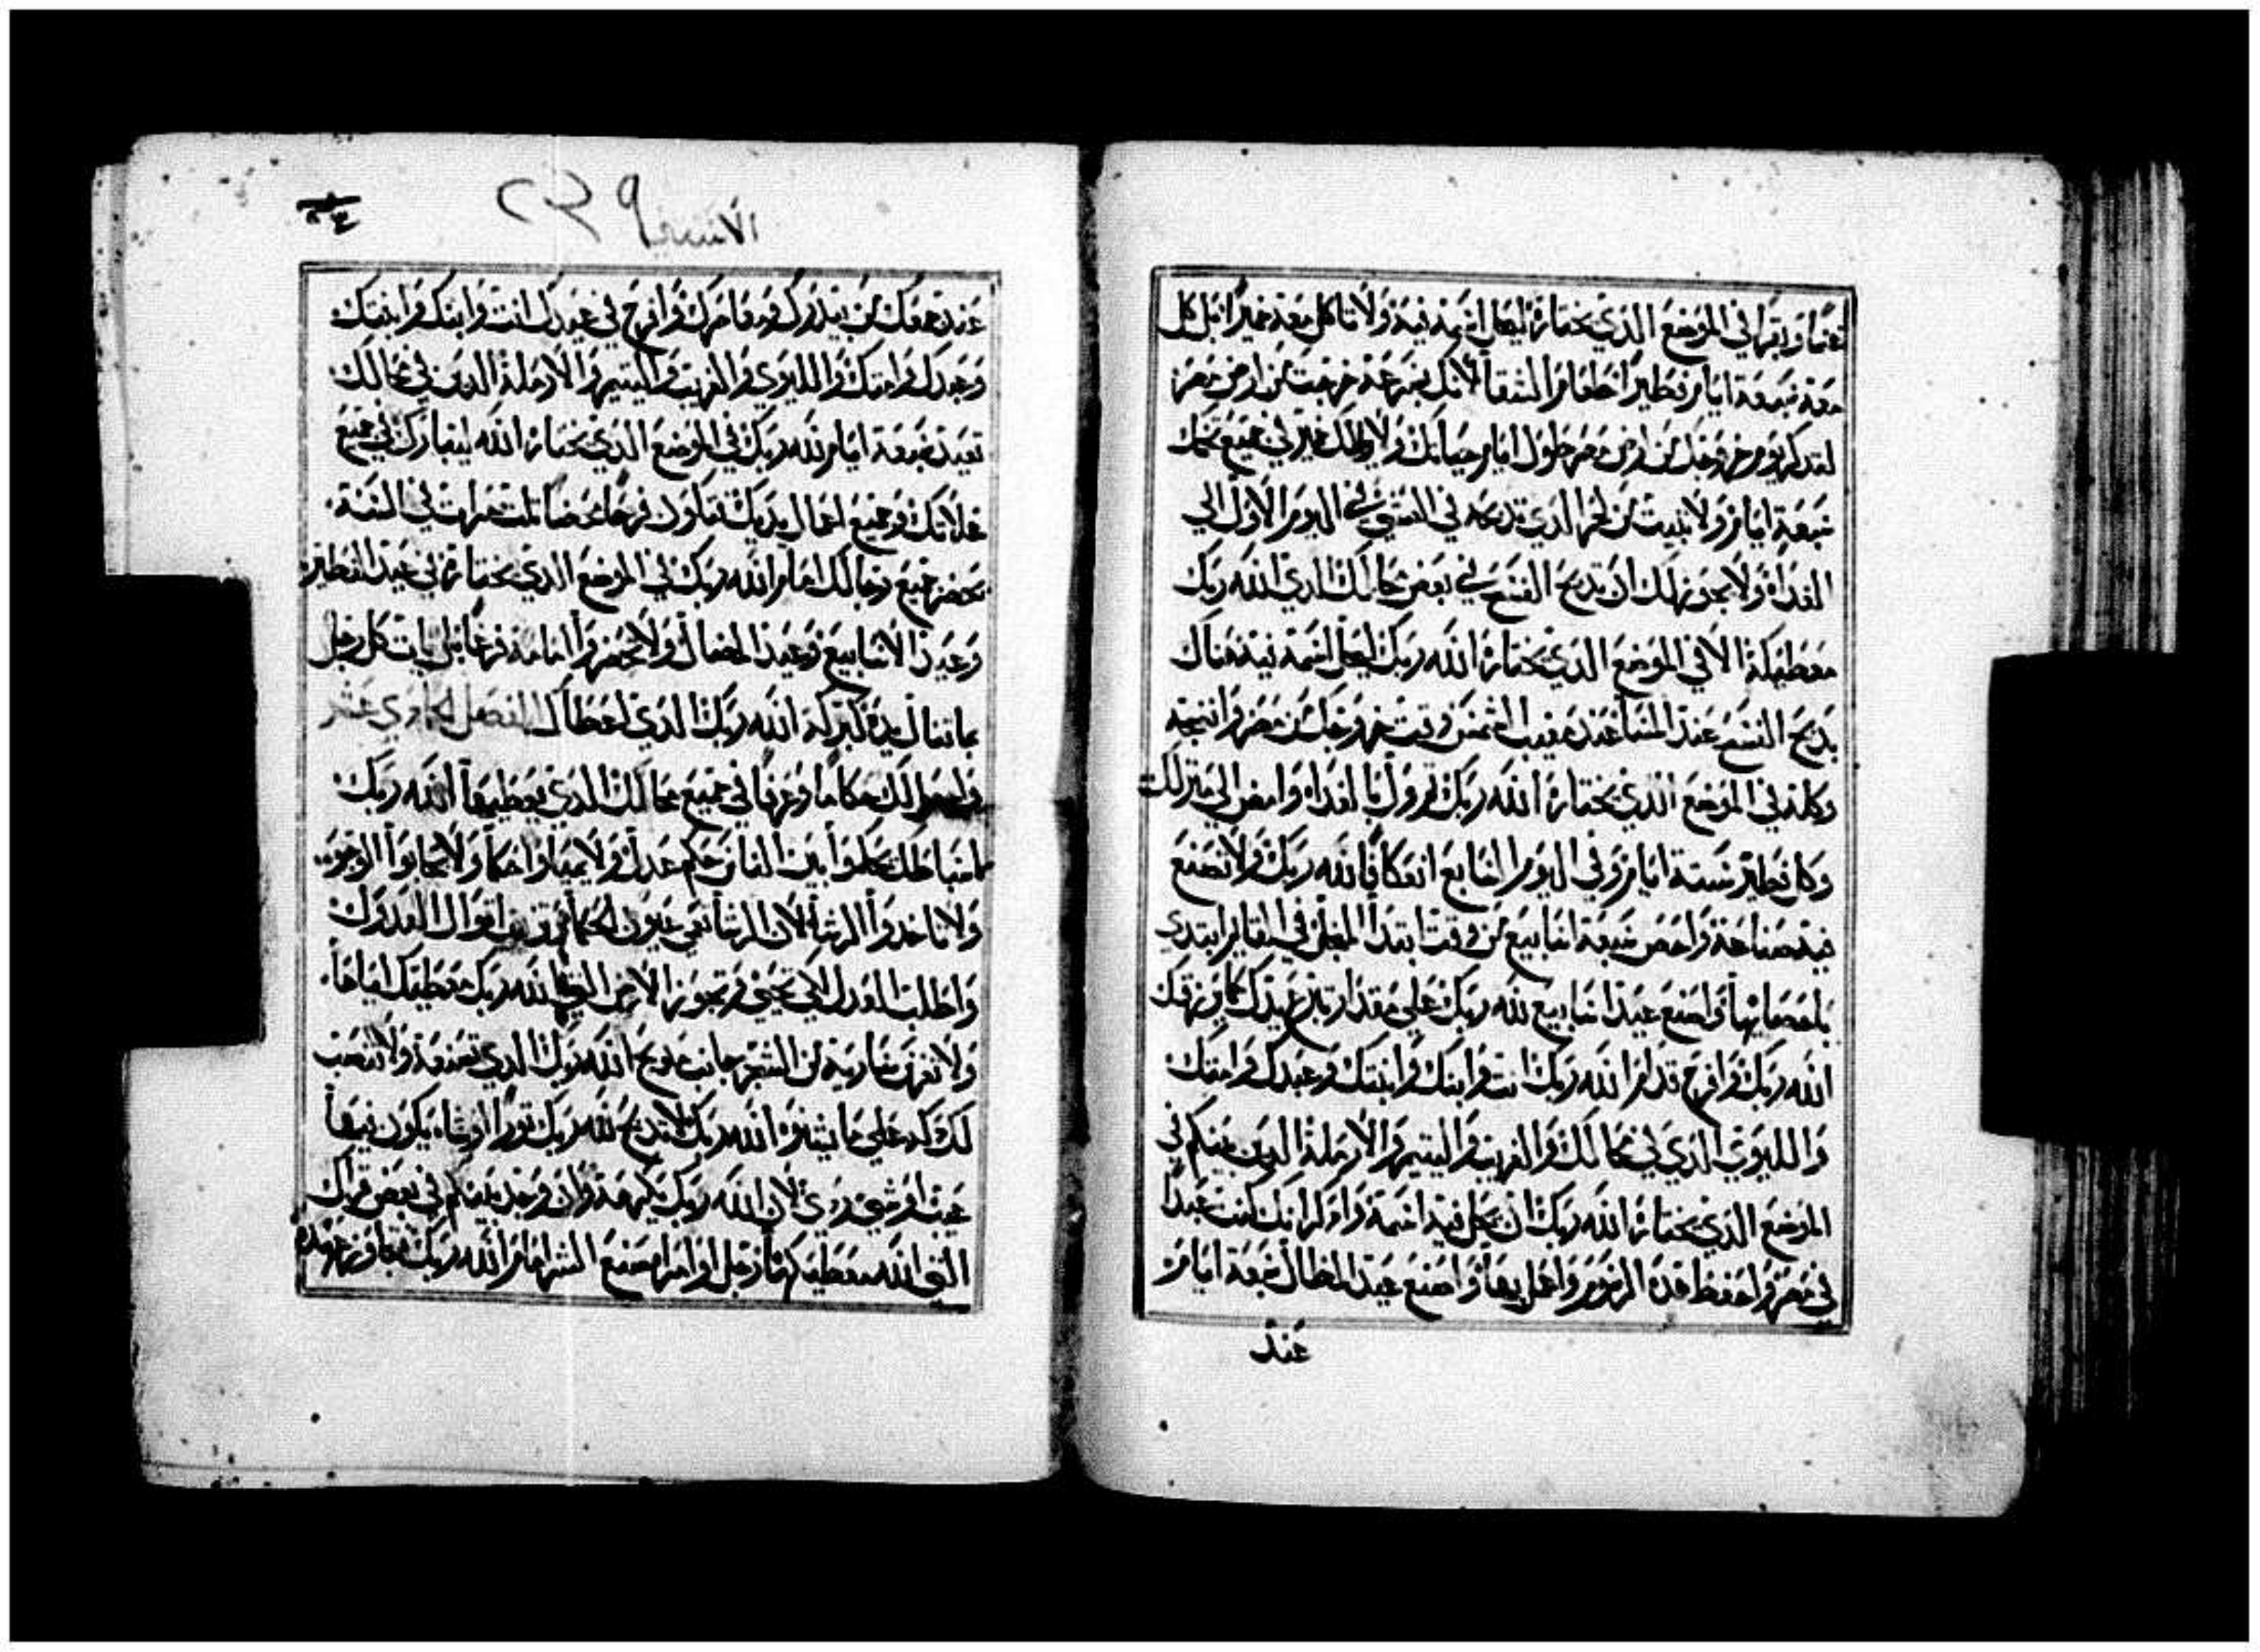 غنمًا وبقرًا في الموضع الذي يختاره ليحل اسمه فيه ولا تاكل معه خميرًا بل كل
معه سبعة ايام فطيرًا طعام الشقا لانك بسرعة خرجت من ارض مصر
لتدكر يوم خروجك من ارض مصر طول ايام حياتك ولا يظهر لك خمير في جميع تخمك
سبعة ايام ولا يبيت من لحم الذي تدبحه في العشي في اليوم الاول الي
الغداه ولا يجوز لك ان تدبح الفسح في بعض محالك الذي الله ربك
معطيكه الا في الموضع الذي يختاره الله ربك ليحل اسمه فيه هناك
يدبح الفسح عند المسا عند مغيب الشمس وقت خروجك من مصر وانتجه
وكله في الموضع الذي يختاره الله ربك وول بالغداه وامض الي منزلك
وكل فطير ستة ايام وفي اليوم السابع اعتكافًا لله ربك ولا تصنع
فيه صناعة واحص سبعة اسابيع من وقت ابتدا المنجل في القايم ابتدي
باحصايها واصنع عيد اسابيع لله ربك علي مقدار تبرع يدك كما يرزقك
الله ربك وافرح قدام الله ربك انت وابنك وابنتك وعبدك وامتك
والليوي الذي في محالك والغريب واليتيم والارملة الدين منكم في
الموضع الذي يختاره الله ربك ان يحل فيه اسمه وادكر انك كنت عبدًا
في مصر واحفظ هذه الرسوم واعمل بها واصنع عيد المظال سبعة ايام
عند
الاستثنا ٢٣٩
عند جمعك من بيدرك ومعاصرك وافرح في عيدك انت وابنك وابنتك
وعبدك وامتك والليوي والغريب واليتيم والارملة الدين في محالك
تعيد سبعة ايام لله ربك في الموضع الذي يختاره الله ليباركك في جميع
غلاتك وجميع اعمال يديك تكون فرحًا محضًا تلت مرات في السنة
يحضر جميع رجالك امام الله ربك في الموضع الذي يختاره في عيد الفطير
وعيد الاسابيع وعيد المضال ولا يحضروا امامه فرغًا بل يات كل رجل
بما تنال يده كبركة الله ربك الذي اعطاك الفصل الحادي عشر
واجعل لك حكامًا وعرفا في جميع محالك الذي يعطيها الله ربك
اسباطك يحكموا بين الناس حكم عدل ولا يميلوا حكمًا ولا يحابوا الوجوه
ولا تاخدوا الرشا لان الرشا تعمي عيون الحكما وتزيف اقوال العدول
واطلب العدل لكي تحيى وتجوز الارض التي الله ربك معطيك اياها
ولا تغرس سارية من الشجر جانب مدبح الله ربك الذي تصنعه ولا تنصب
لك دكه علي ما يشنوه الله ربك لا تدبح لله ربك تورًا او شاه يكون فيها
عيب او شي ردي لان الله ربك يكرهه وان وجد بينكم في بعض قراك
التي الله معطيكها رجل او امراه صنع الشر امام الله ربك متجاوز عهده